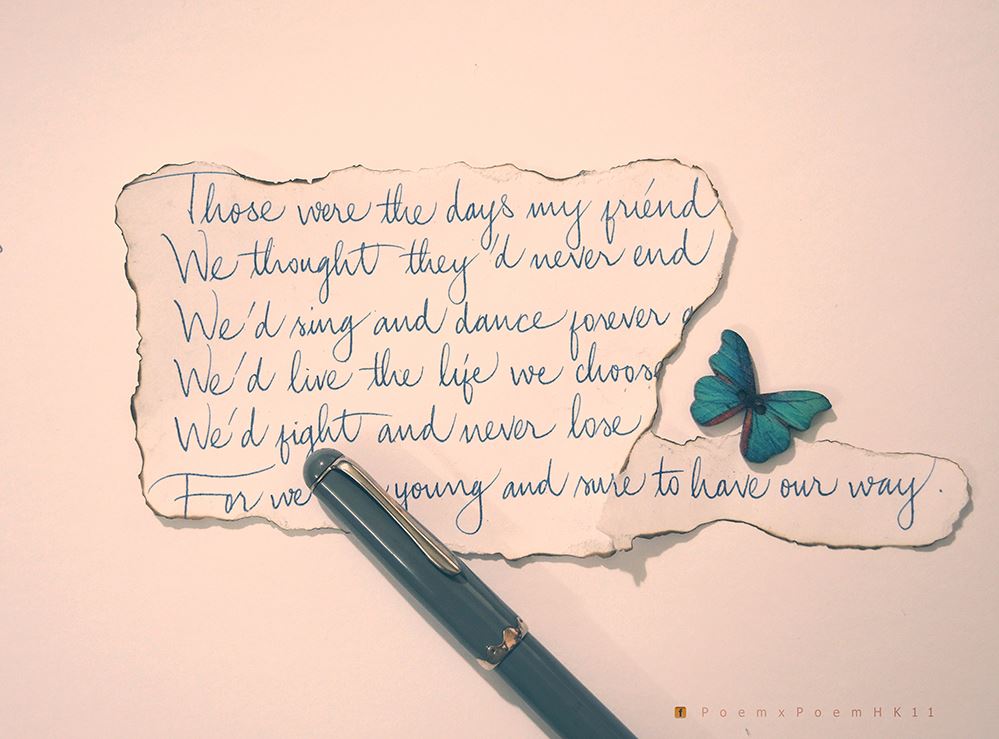 Those were the days my friend
We thought they'd never end
We'd sing and dance forever
We'd live the life we choose
We'd fight and never lose
For we young and sure to have our way.
f PoemxPoemHK11